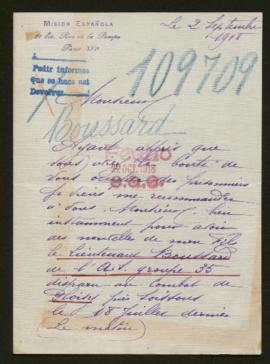 MISION ESPAÑOLA
Rue de la Pompe
Paris XVI
Le 2 Septembre
1918
A
Pedir informes
Que se hace así
Devolver
109709
Monsieur
Boussard
Ayant appris que
vous avez la bonté de
vous occuper des prisonniers
je viens me recommander
à vous Monsieur, bien
instamment pour avoir
des nouvelles de mon fils
le Lieutenant Boussard
de l'A.S. groupe 35
disparu au combat de
Ploisy près Soissons
le 18 juillet dernier
Le matin